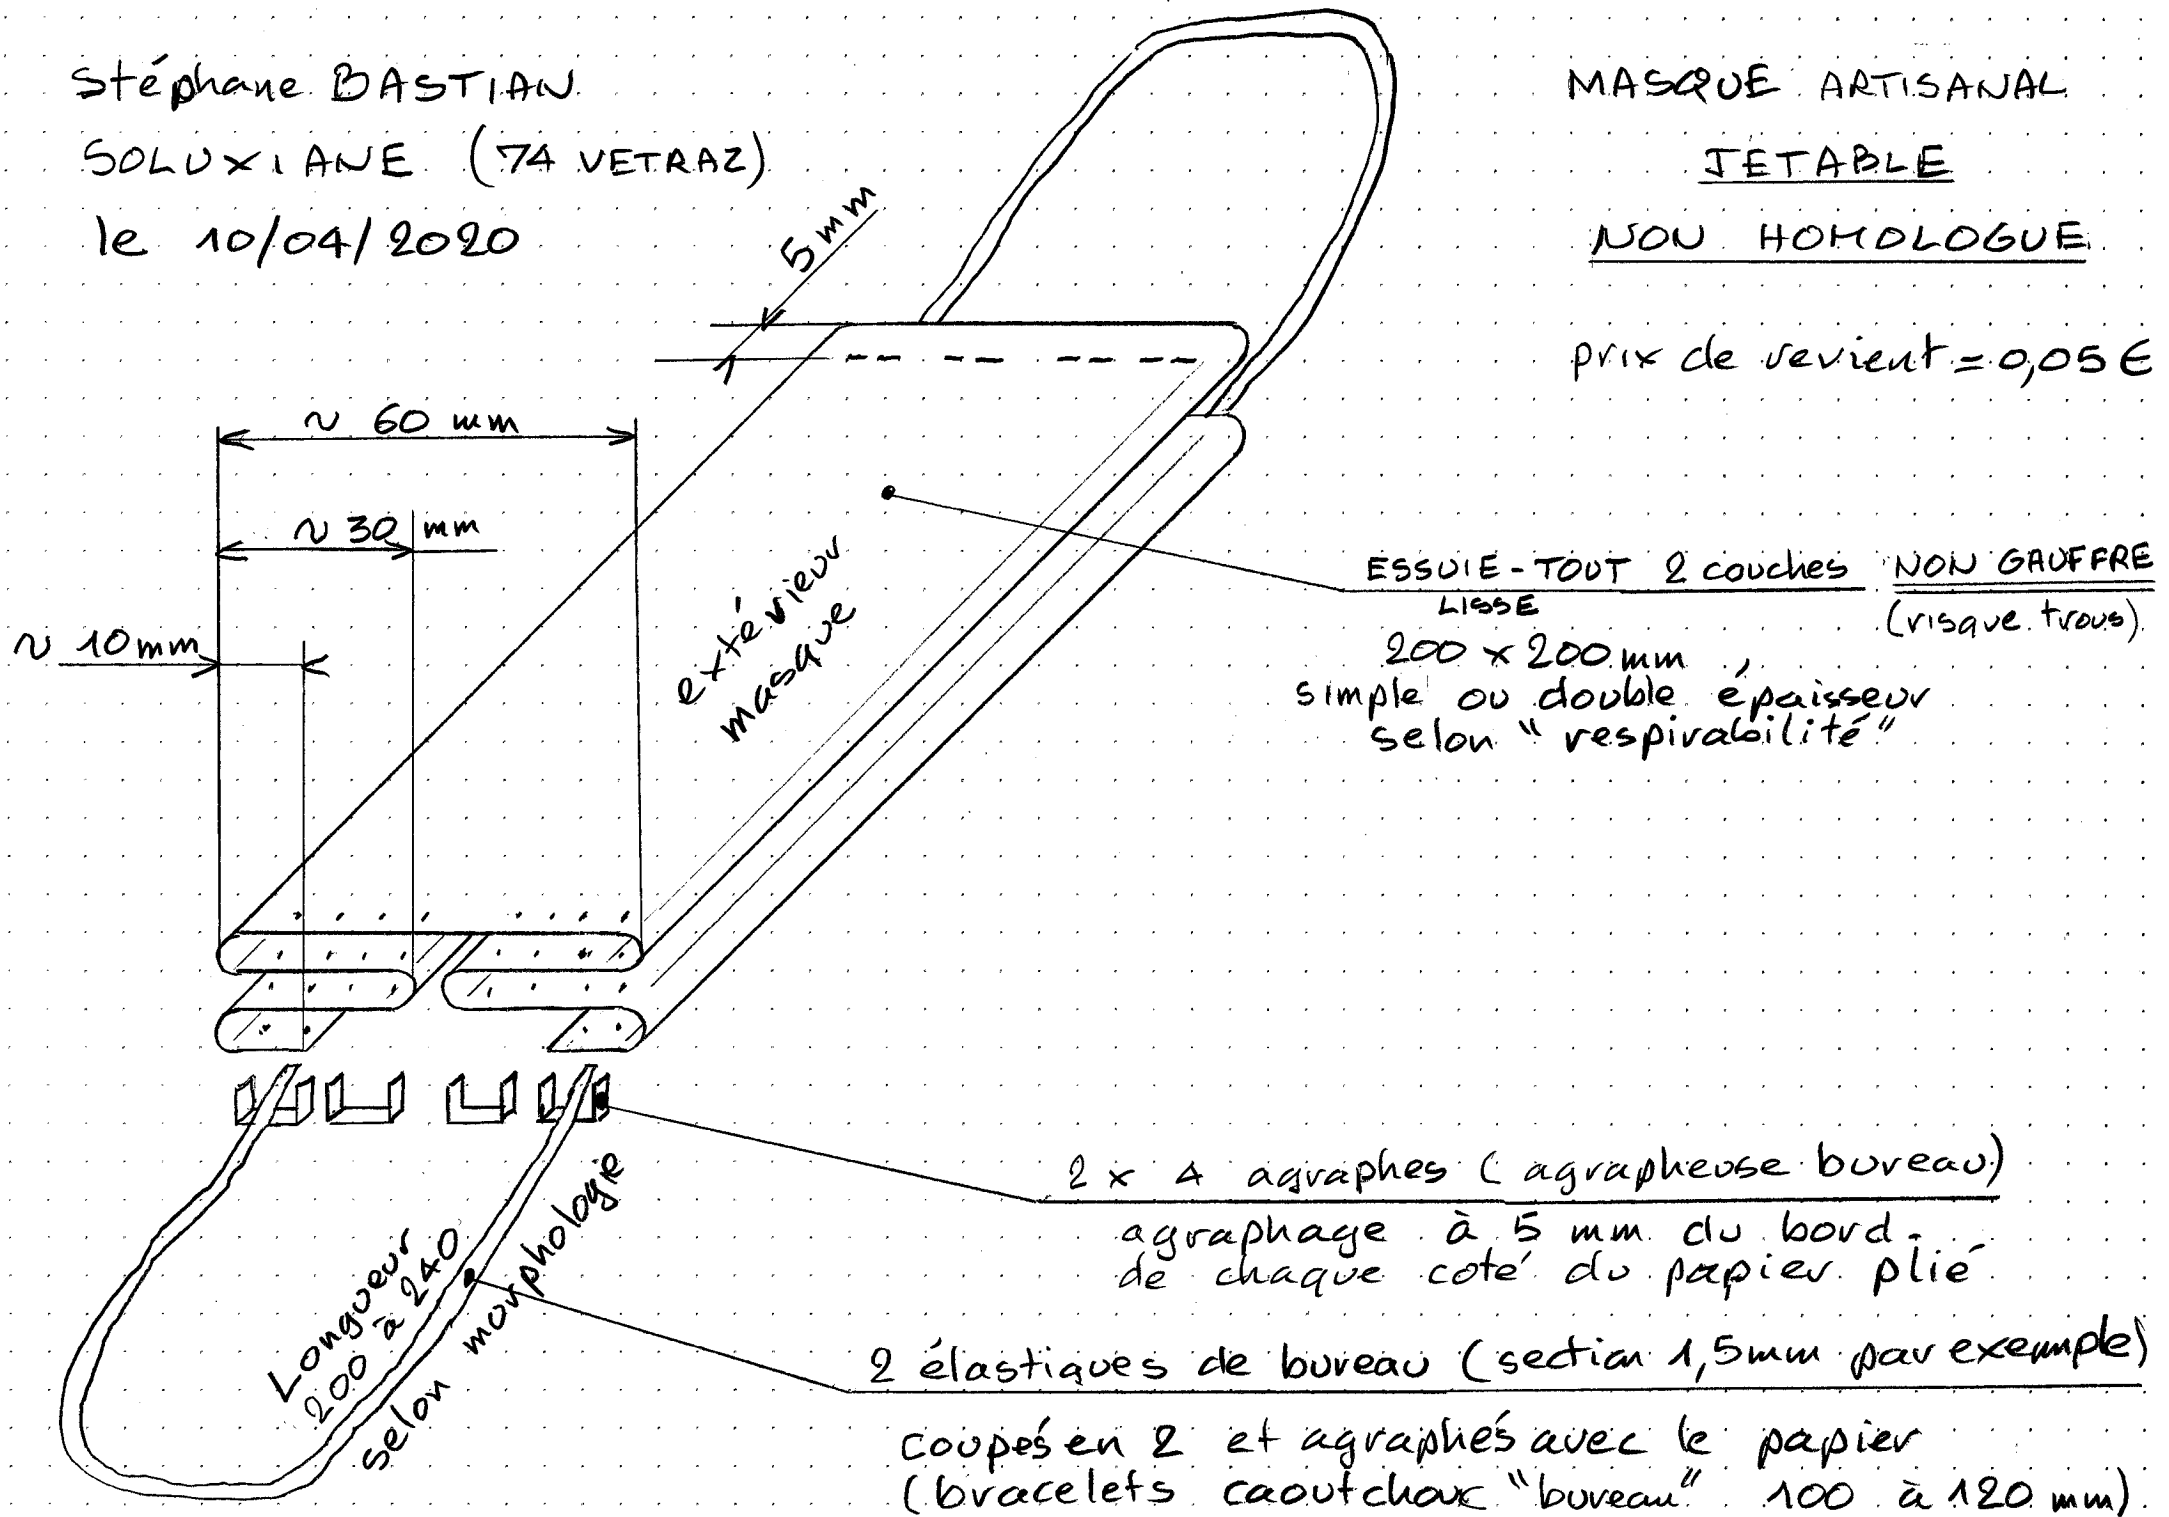 Stéphane BASTIAN
SOLUXIANE (74 VETRAZ)
le 10/04/2020
MASQUE ARTISANAL
JETABLE
NON HOMOLOGUE
prix de revient = 0,05 €
5 mm
~ 60 mm
~ 30 mm
~ 10 mm
extérieur
masque
ESSUIE-TOUT 2 couches NON GAUFFRE
LISSE
(risque trous)
200 x 200 mm,
simple ou double épaisseur
selon "respirabilité"
2 x 4 agraphes (agrapheuse bureau)
agraphage à 5 mm du bord
de chaque coté du papier plié
Longueur
200 à 240
selon morphologie
2 élastiques de bureau (section 1,5mm par exemple)
coupés en 2 et agraphés avec le papier
(bracelets caoutchouc "bureau" 100 à 120 mm)